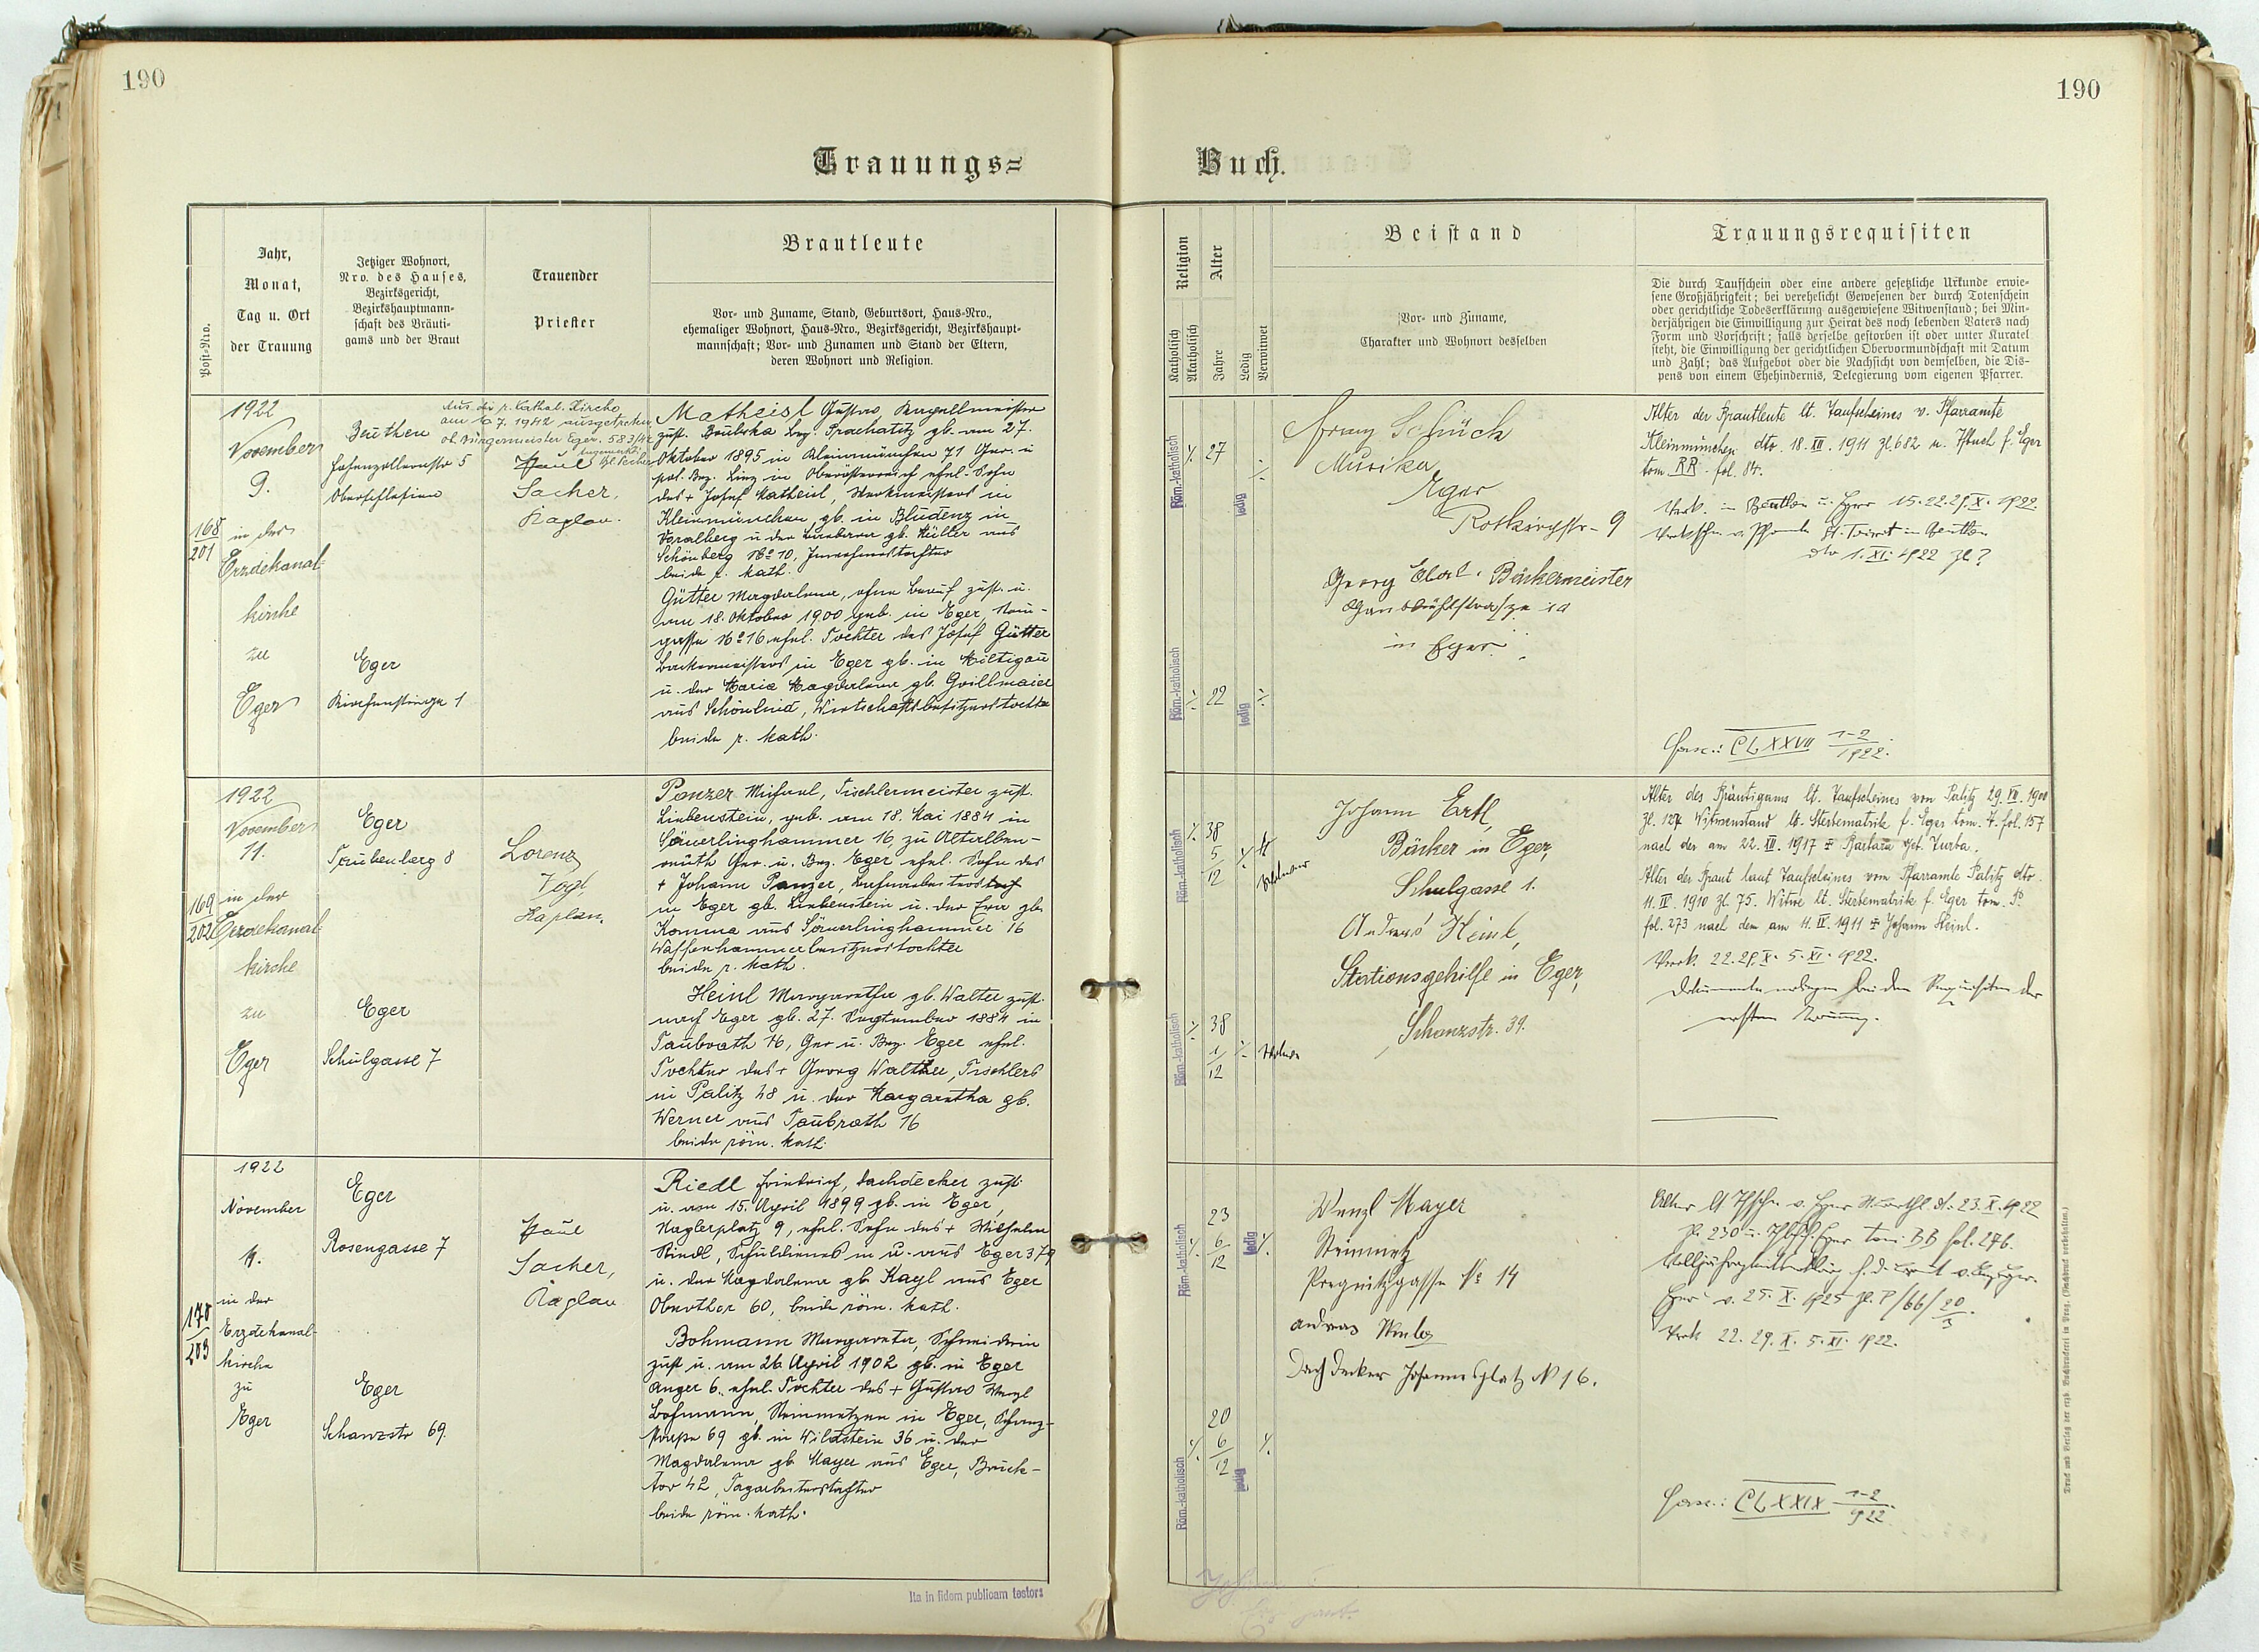 190
190
Trauungs=
Buch.
Post=Nro.
Jahr,
Monat,
Tag u. Ort
der Trauung
Jetziger Wohnort,
Nro. des Hauses,
Bezirksgericht,
Bezirkshauptmann-
schaft des Bräuti-
gams und der Braut
Trauender
Priester
Brautleute
Vor- und Zuname, Stand, Geburtsort, Haus=Nro.,
ehemaliger Wohnort, Haus=Nro., Bezirksgericht, Bezirkshaupt-
mannschaft; Vor- und Zunamen und Stand der Eltern,
deren Wohnort und Religion.
Religion
Katholisch
Akatholisch
Alter
Jahre
Ledig
Verwitwet
Beistand
Vor- und Zuname,
Charakter und Wohnort desselben
Trauungsrequisiten
Die durch Taufschein oder eine andere gesetzliche Urkunde erwie-
sene Großjährigkeit; bei verehelicht Gewesenen der durch Totenschein
oder gerichtliche Todeserklärung ausgewiesene Witwenstand; bei Min-
derjährigen die Einwilligung zur Heirat des noch lebenden Vaters nach
Form und Vorschrift; falls derselbe gestorben ist oder unter Kuratel
steht, die Einwilligung der gerichtlichen Obervormundschaft mit Datum
und Zahl; das Aufgebot oder die Nachsicht von demselben, die Dis-
pens von einem Ehehindernis, Delegierung vom eigenen Pfarrer.
168
201
1922
November
9.
in der
Erzdekanal-
kirche
zu
Eger
Beuthen
Hohenzollernstr 5
Oberschlesien
Eger
Kirchenstiege 1
Aus der r. kathol. Kirche
am 10 7. 1942 ausgetreten
Bürgermeister Eger. 583/42
Paul
Sacher,
Kaplan.
Matheisl Gustav, Kapellmeister
zust. Bez. Prachatitz gb. am 27.
Oktober 1895 in Kleinmünchen 71 Ger. u
pol. Bez. Linz in Oberösterreich ehel. Sohn
des + Josef Matheisl, Werkmeisters in
Kleinmünchen, gb. in Bludenz in
Voralberg u der Barbara gb. Müller aus
Schönberg No 10,
beide r. kath.
Gütter Magdalena, ohne Beruf zust. u.
am 18. Oktober 1900 geb. in Eger,
gasse No 16 ehel. Tochter des Josef Gütter
Bäckermeisters in Eger gb. in Miltigau
u. der Maria Magdalena gb. Grillmaier
aus Schönlind, Wirtschaftsbesitzerstochter
beide r. kath.
Röm.-katholisch
27
ledig
Röm.-katholisch
22
ledig
Franz Schück
Musiker
Eger
Rotkirchstr- 9
Georg Bäckermeister
in Eger.
Alter der Brautleute lt. Taufscheines v. Pfarramte
Kleinmünchen dto. 18. III. 1911 Zl 682 u. Tfbuch f. Eger
tom. RR. fol. 84.
Verk. in Beuthen u. Eger 15. 22. 29. X. 1922.
dto 1. XI. 1922 Zl. ?
Fasc.: CLXXVII 1-2
1922.
169
202
1922
November
11.
in der
Erzdekanal-
kirche
zu
Eger
Eger
Taubenberg 8
Eger
Schulgasse 7
Lorenz
Vogl,
Kaplan.
Panzer Michael, Tischlermeister zust.
Liebenstein, geb. am 18. Mai 1884 in
Säuerlinghammer 16, zu Altalben-
reuth Ger. u. Bez. Eger ehel. Sohn des
+ Johann Panzer,
in Eger gb. Liebenstein u. der Eva gb.
Komma aus Säuerlinghammer 16
Waffenhammerbesitzerstochter
beide r. kath.
Heinl Margaretha gb. Walter zust.
nach Eger gb. 27. September 1884 in
Taubrath 16, Ger u. Bez. Eger ehel.
Tochter des + Georg Walther, Tischlers
in Palitz 48 u. der Margaretha gb.
Werner aus Taubrath 16
beide röm. kath.
Röm.-katholisch
38
5
12
Witwer
Röm.-katholisch
38
1
12
Witwe
Johann Ertl,
Bäcker in Eger,
Schulgasse 1.
Andreas Heinl,
Stationsgehilfe in Eger,
Schanzstr. 39.
Alter des Bräutigams lt. Taufscheines von Palitz 29. VII. 1900
Zl. 127 Witwenstand lt. Sterbematrik f. Eger tom. T. fol. 157
nach der am 22. III. 1917 + Barbara geb. Zurba.
Alter der Braut laut Taufscheines vom Pfarramte Palitz dto.
11. IV. 1910 Zl. 75. Witwe lt. Sterbematrik f. Eger tom. P.
fol. 273 nach dem am 11. IV. 1911 + Johann Heinl.
Verk. 22. 29. X. 5. XI. 1922.
Dokumente bei den Requisiten der
ersten Trauung.
170
203
1922
November
11.
in der
Erzdekanal-
kirche
zu
Eger
Eger
Rosengasse 7
Eger
Schanzstr 69.
Paul
Sacher,
Kaplan
Riedl Friedrich, Dachdecker zust.
u. am 15. April 1899 gb. in Eger,
Naglerplatz 9, ehel. Sohn des + Wilhelm
Riedl, Schuldieners in u. aus Eger 379
u. der Magdalena gb. Kayl aus Eger
Oberthor 60, beide röm. kath.
Bohmann Margareta, Schneiderin
zust u. am 26 April 1902 gb. in Eger
Anger 6. ehel. Tochter des + Gustav Wenzl
Bohmann, Steinmetzen in Eger, Schanz-
strasse 69 gb. in Wildstein 36 u. der
Magdalena gb Mayer aus Eger, Bruck-
tor 42, Tagarbeiterstochter
beide röm. kath.
Röm.-katholisch
23
6
12
ledig
Röm.-katholisch
20
6
12
ledig
Wenzl Mayer
Steinmetz
No 14
Andreas
Dachdecker Johannesplatz N 16.
23. X. 1922
Zl. 230 u. Eger tom. BB fol. 276.
Verk 22. 29. X. 5. XI. 1922.
Fasc.: CLXXIX 1-2
922.
Ita in fidem publicam testor:
Druck und Verlag der erzb. Buchdruckerei in Prag. (Nachdruck vorbehalten.)